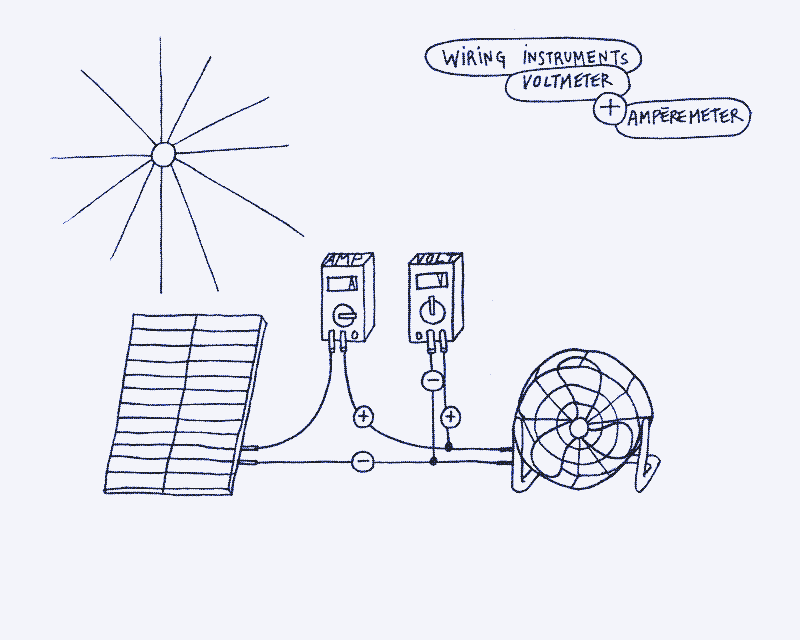 WIRING INSTRUMENTS
VOLTMETER
+
AMPĒREMETER
AMP
A
VOLT
V
−
+
+
−